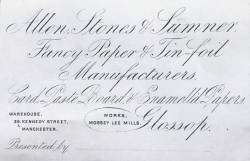 Allen, Stones & Sumner.
Fancy Paper & Tin-foil
Manufacturers.
Card, Paste Board, & Enamell'd Papers
WAREHOUSE,
58, KENNEDY STREET,
MANCHESTER.
WORKS,
MOSSEY LEE MILLS,
Glossop.
Presented by